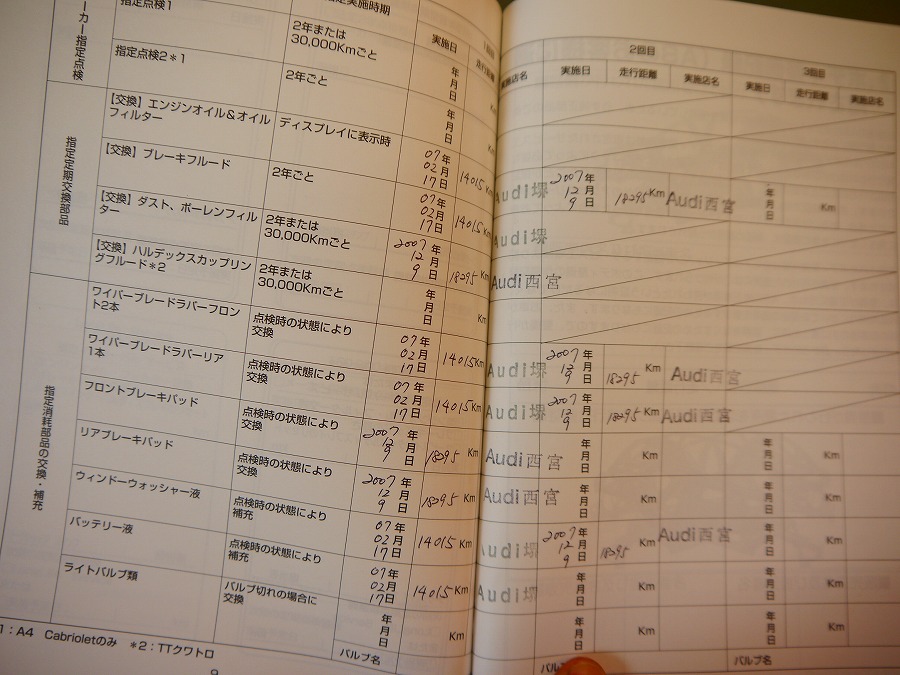 指定実施時期
1回目
実施日
走行距離
2回目
実施日
走行距離
実施店名
3回目
実施日
走行距離
実施店名
メーカー指定点検
指定点検1
2年または
30,000Kmごと
年
月
日
Km
指定点検2*1
2年ごと
年
月
日
Km
指定定期交換部品
【交換】エンジンオイル&オイル
フィルター
ディスプレイに表示時
07年
02月
17日
14015Km
Audi堺
2007年
12月
9日
18295Km
Audi西宮
年
月
日
Km
【交換】ブレーキフルード
2年ごと
07年
02月
17日
14015Km
Audi堺
【交換】ダスト、ポーレンフィル
ター
2年または
30,000Kmごと
2007年
12月
9日
18295Km
Audi西宮
【交換】ハルデックスカップリン
グフルード*2
2年または
30,000Kmごと
年
月
日
Km
指定消耗部品の交換・補充
ワイパーブレードラバーフロン
ト2本
点検時の状態により
交換
07年
02月
17日
14015Km
Audi堺
2007年
12月
9日
18295Km
Audi西宮
ワイパーブレードラバーリア
1本
点検時の状態により
交換
07年
02月
17日
14015Km
Audi堺
2007年
12月
9日
18295Km
Audi西宮
フロントブレーキパッド
点検時の状態により
交換
2007年
12月
9日
18295Km
Audi西宮
年
月
日
Km
年
月
日
Km
リアブレーキパッド
点検時の状態により
交換
2007年
12月
9日
18295Km
Audi西宮
年
月
日
Km
年
月
日
Km
ウィンドーウォッシャー液
点検時の状態により
補充
07年
02月
17日
14015Km
Audi堺
2007年
12月
9日
18295Km
Audi西宮
年
月
日
Km
バッテリー液
点検時の状態により
補充
07年
02月
17日
14015Km
Audi堺
年
月
日
Km
年
月
日
Km
ライトバルブ類
バルブ切れの場合に
交換
年
月
日
Km
年
月
日
Km
年
月
日
Km
バルブ名
バルブ名
1:A4 Cabrioletのみ *2:TTクワトロ